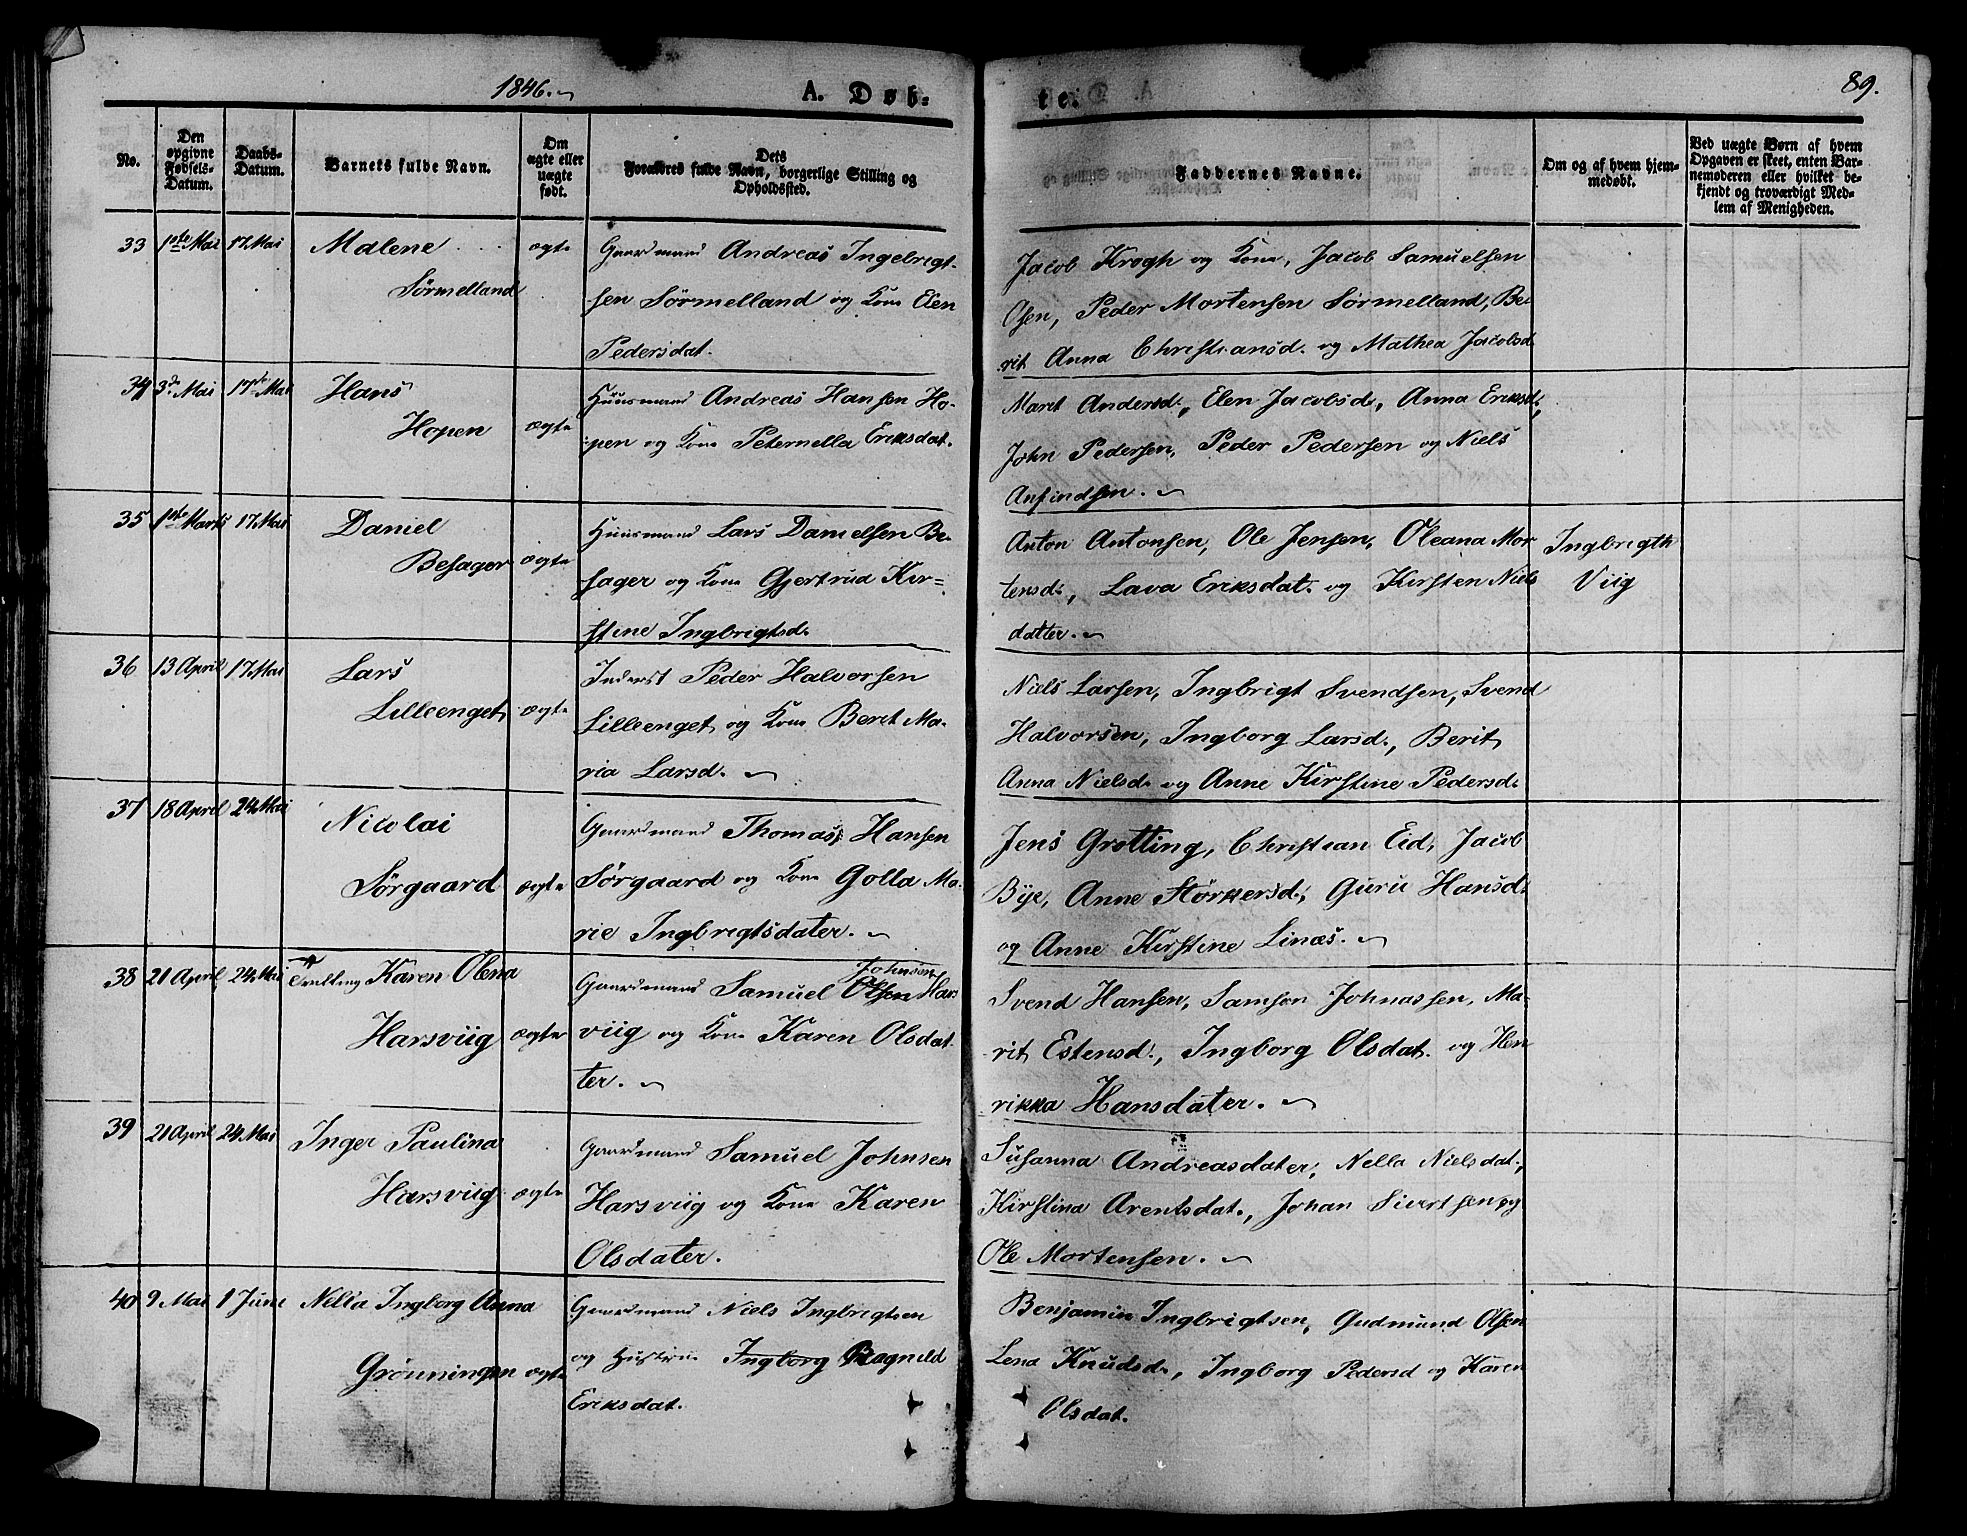 1846.
A. Døb-
te.
89.
No.
Den
opgivne
Fødsels-
Datum.
Daabs-
Datum.
Barnets fulde Navn.
Om
ægte eller
uægte
født.
Dets
Forældres fulde Navn, borgerlige Stilling og
Opholdssted.
Faddernes Navne.
Om og af hvem hjem-
medøbt.
Ved uægte Børn af hvem
Opgaven er skeet, enten Bar-
nemoderen eller hvilket be-
kjendt og troværdigt Med-
lem af Menigheden.
33 1ste Mai 17 Mai Malene
Sørmelland
ægte
Gaardmand Andreas Ingebrigt-
sen Sørmelland og Kone Elen
Pedersdat.
Jacob Krogh og Kone, Jacob Samuelsen
Osen, Peder Mortensen Sørmelland, Be-
rit Anna Christiansd. og Mathea Jacobsd.
34 3d. Mai 17de Mai Hans
Hopen
ægte
Huusmand Andreas Hansen Ho-
pen og Kone Peternella Eriksdat.
Marit Andersd., Elen Jacobsd., Anna Eriksd.,
John Pedersen, Peder Pedersen og Niels
Anfindsen.
35 1ste Marts 17 Mai Daniel
Besager
ægte
Huusmand Lars Danielsen Be-
sager og Kone Gjertrud Kir-
stine Ingbrigtsd.
Anton Antonsen, Ole Jensen, Oleana Mor
tensd., Lava Eriksdat. og Kirsten Niels
datter.
Ingbrigth
Viig
36 13 April 17 Mai Lars
Lilleenget
ægte
Inderst Peder Halvorsen
Lilleenget og Kone Beret Ma-
ria Larsd.
Niels Larsen, Ingbrigt Svendsen, Svend
Halvorsen, Ingborg Larsd., Berit
Anna Nielsd. og Anne Kirstine Pedersd.
37 18 April 24 Mai Nicolai
Sørgaard
ægte
Gaardmand Thomas Hansen
Sørgaard og Kone Golla Ma-
rie Ingbrigtsdater.
Jens Grotting, Christian Eid, Jacob
Bye, Anne Størkersd., Guru Hansd.
og Anne Kirstine Linæs.
38 21 April 24 Mai Tvilling Karen Olena
Harsviig
ægte
Johnsen
Gaardmand Samuel Olsen Hars
viig og Kone Karen Olsdat
ter.
Svend Hansen, Samson Johnassen, Ma-
rit Estensd., Ingborg Olsdat. og Hen
rikka Hansdater.
39 21 April 24 Mai Inger Paulina
Harsviig
ægte
Gaardmand Samuel Johnsen
Harsviig og Kone Karen
Olsdater.
Susanna Andreasdater, Nella Nielsdat.,
Kirstina Arentsdat., Johan Sivertsen og
Ole Mortensen.
40 9 Mai 1 Juni Nella Ingborg Anna
Grønningen
ægte
Gaardmand Niels Ingbrigtsen
og Hustrue Ingborg Ragnild
Eriksdat.
Benjamin Ingbrigtsen, Gudmund Olsen
Lena Knudsd., Ingborg Pedersd og Karen
Olsdat.